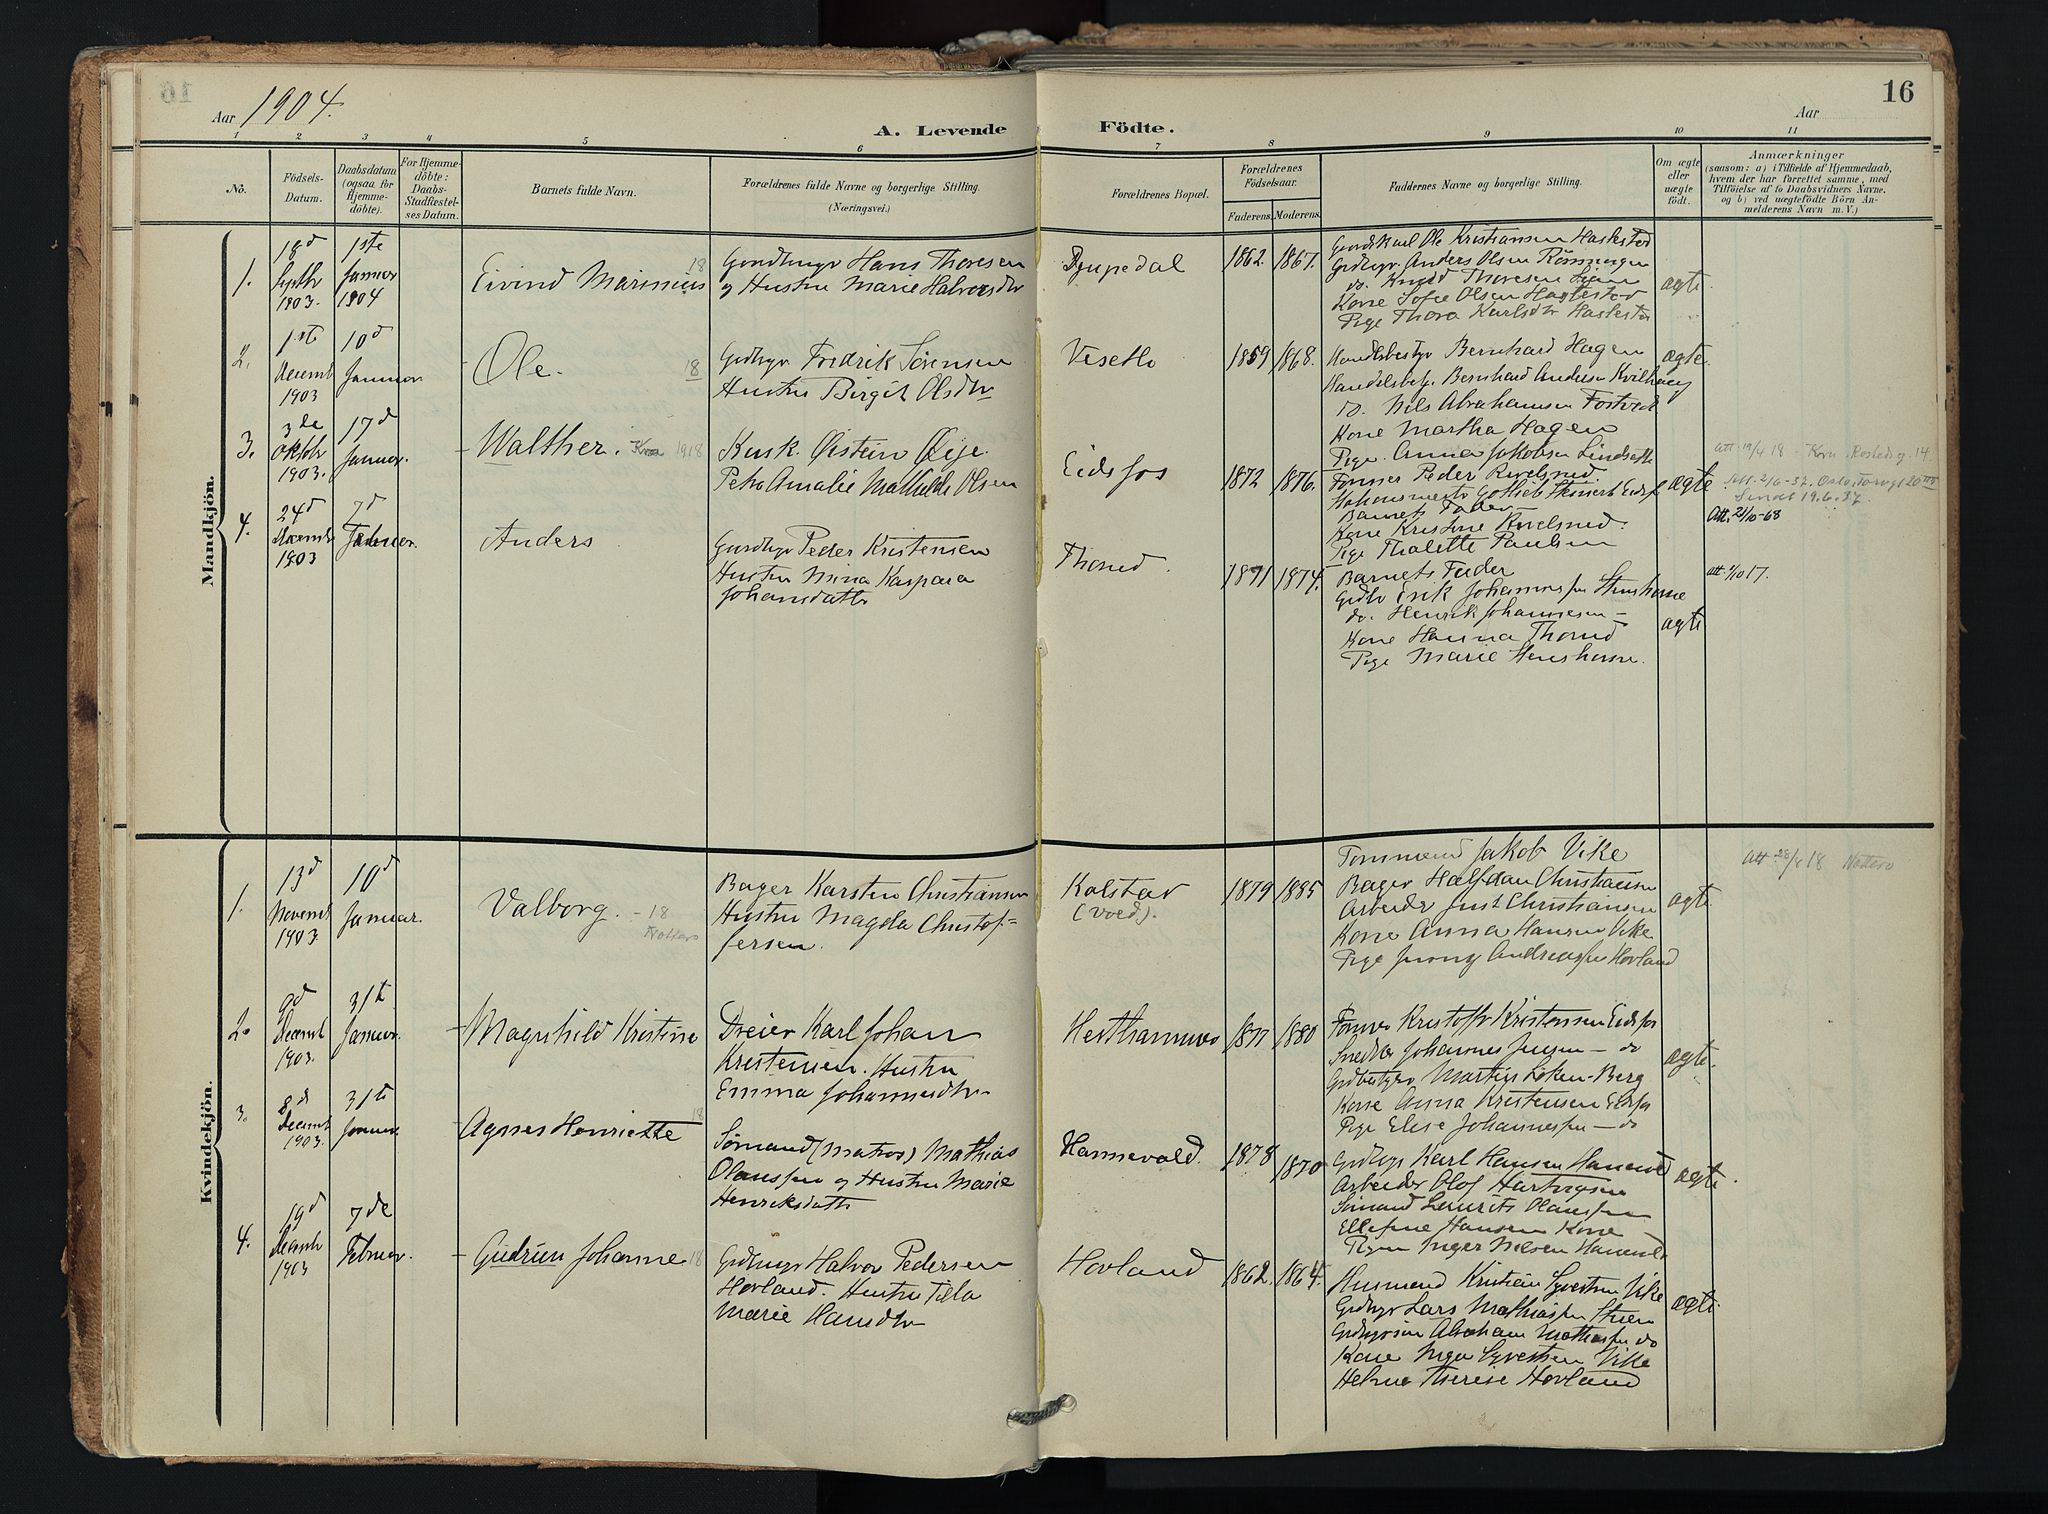 16
Aar 1904.
Aar
A. Levende Födte.
1 2 3 4 5 6 7 8 9 10 11
No.
Födsels-Datum.
Daabsdatum (ogsaa for Hjemme-döbte).
For Hjemme-döbte: Daabs-Stadfæstel-ses Datum.
Barnets fulde Navn.
Forældrenes fulde Navne og borgerlige Stilling.
(Næringsvei.)
Forældrenes Bopæl.
Forældrenes Födselsaar.
Faderens. Moderens.
Faddernes Navne og borgerlige Stilling.
Om ægte eller uægte födt.
Anmærkninger
(saasom: a) i Tilfælde af Hjemmedaab,
hvem der har forrettet samme, med
Tilföielse af to Daabsvidners Navne,
og b) ved uægtefödte Börn An-
melderens Navn m. V.)
Mandkjön.
1.
18d
Septbr
1903.
1ste
Januar
1904
Eivind Marinius 18
Gaardbrugr Hans Thoresen
og Hustru Marie Halvorsdtr
Djupedal
1862. 1867.
Gaardskarl Ole Kristiansen Haskestad
Grdbgr. Anders Olsen Rönningen
do. Knud Thoresen
Kone Sofie Olsen Haskestad
Pige Thora Karlsdtr Haskestad
ægte
2.
1ste
Decemb
1903
10d
Januar.
Ole. 18
Grdbgr Fredrik Sörensen
Hustru Birgit Olsdtr
Vesetlo
1859 1868.
Handlsbestyr Bernhard Hagen
Handelsbetj. Bernhard Andersen
do. Nils Abrahamsen Fostvedt
Kone Martha Hagen
Pige. Anna Jakobsen
ægte.
3.
3de
Oktbr
1903.
17d
Januar.
Walther. Kra 1918
Kusk. Øistein Øije.
Petra Amalie Mathilde Olsen
Eidsfos
1872 1876.
Former Peder Revelsrud.
Gotlieb Steinert Eidsf
Barnets Fader
Kone Kristine Revelsrud.
Pige Thalette Paulsen
ægte
Att 19/4 18 - Kra. Rostedsg. 14
Att. 2/6-37. Oslo
Sendt 19.6.37.
Att. 21/10-68
4.
24d
Decemb
1903
7d
Februar.
Anders
Gaardbgr Peder Kristensen
Hustru Mina Kaspara
Johansdattr
Thorud.
1871 1874.
Barnets Fader
Grdbr Erik Johannesen
do. Henrik Johannesen -
Kone Hanna Thorud
Pige Marie
ægte
Kvindekjön.
1.
13d
Novemb
1903.
10d
Januar.
Valborg. - 18
Nøtterø
Bager Karsten Christiansen
Hustru Magda Christof-
fersen.
Kolstad
1879 1885
Tömmermd Jakob Vike
Bager Halfdan Christiansen
Arbeider Just Christiansen
Kone Anna Hansen Vike
Pige Jenny Andreassen Hovland
ægte.
Att 28/8 18 Nøtterø
2.
9d
Decemb
1903.
31te
Januar.
Magnhild Kristine
Dreier Karl Johan
Kristensen. Hustru
Emma Johannesdtr.
1877 1880
Former Kristoffr Kristensen Eidsfos
Snedker Johannes Jensen - do
Grdbestyrer Martin Løken - Berg
Kone Anna Kristensen Eidsfos
Pige Elise Johannessen - do
ægte.
3.
8d
Decemb
1903.
31te
Januar
Agnes Henriette 18
Sømand (Matros) Mathias
Olaussen og Hustru Marie
Henriksdattr
Hannevold.
1878 1870
Grdbgr Karl Hansen Hannevold
Arbeider Olof
Sømand Laurits Olaussen
Ellefine Hansen Kone -
Pigen Inger Nilsen Hannevold
ægte.
4.
19d
Decemb
1903
7de
Februar.
Gudrun Johanne 18
Grdbrugr Halvor Pedersen
Hovland. Hustru Tela
Marie Hansdtr
Hovland
1862. 1864.
Husmand Kristian Syvertsen Vike
Grdbrgr Lars Mathiassen
Grdbrgrsøn Abraham Mathiassen do
Kone Inga Syvertsen Vike
Helma Therese Hovland
ægte.